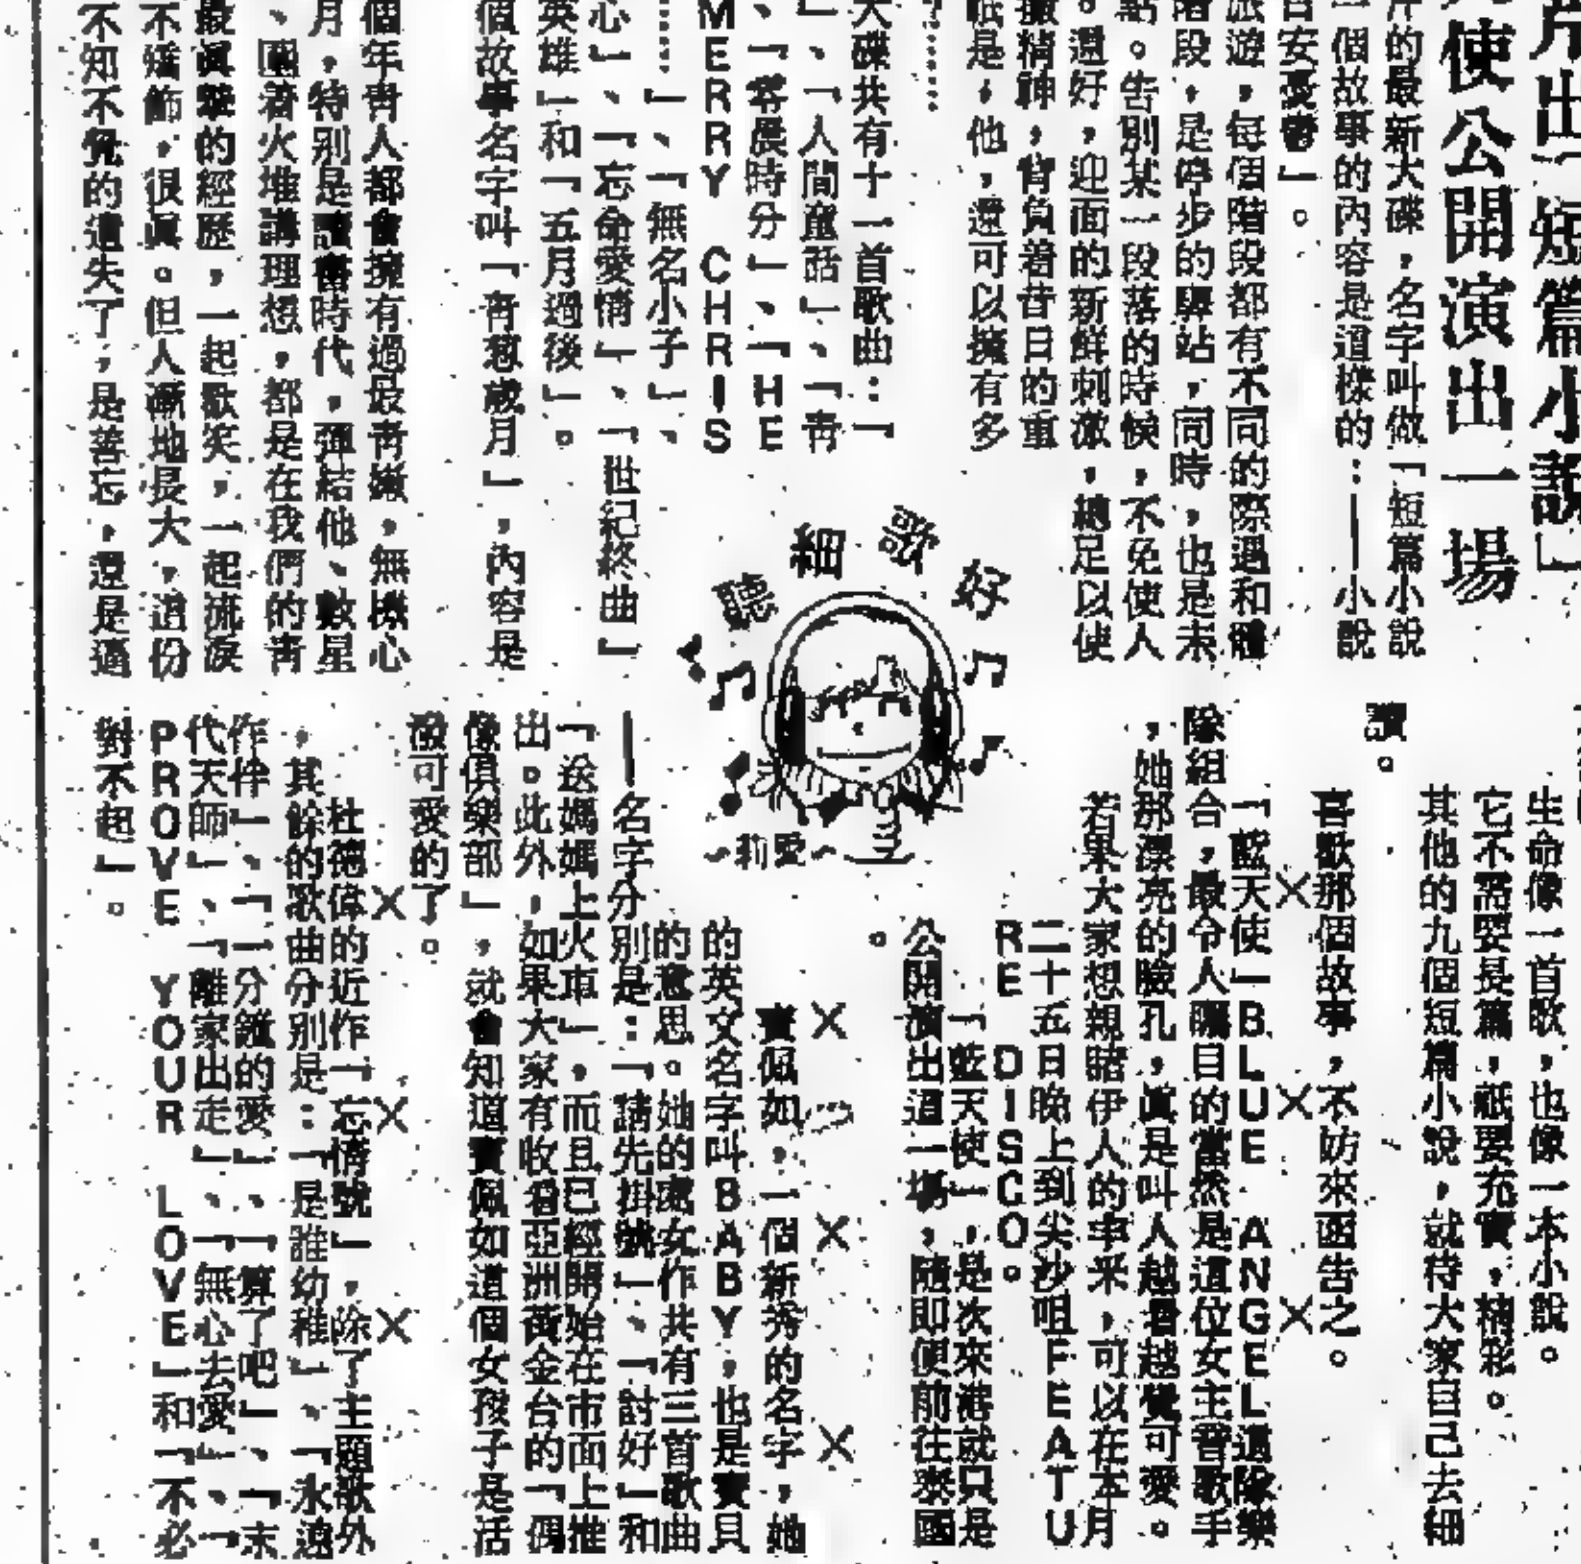 「短篇小說」
使公開演出一場
的最新大碟，名字叫做「短篇小說
一個故事的內容是這樣的：——小說
」。
旅遊，每個階段都有不同的際遇和體
階段，是停步的驛站，同時，也是未
點。告別某一段落的時候，不免使人
。還好，迎面的新鮮刺激，總足以使
精神，背負着昔日的重
是，他，還可以擁有多
……
大碟共有十一首歌曲：「
」、「人間童話」、「青
、「零晨時分」、「HE
MERRY CHRIS
……」、「無名小子」、
心」、「忘命愛情」、「世紀終曲」
英雄」和「五月過後」。
個故事名字叫「青葱歲月」，內容是
個年青人都會擁有過最青嫩，無機心
月，特別是讀書時代，彈結他、數星
、圍着火堆講理想，都是在我們的青
最眞摯的經歷，一起歡笑，一起流淚
不矯飾，很眞。但人漸地長大，這份
不知不覺的遺失了，是善忘，還是逼
好 細聽
莉愛
生命像一首歌，也像一本小說。
它不需要長篇，祇要充實，精彩。
其他的九個短篇小說，就待大家自己去細
讀。
喜歡那個故事，不妨來函告之。
X X X
「藍天使」BLUE ANGEL這隊樂
隊組合，最令人矚目的當然是這位女主音歌手
，她那漂亮的臉孔，眞是叫人越看越覺可愛。
若果大家想親睹伊人的丰采，可以在本月
二十五日晚上到尖沙咀FEATU
RE DISCO。
「藍天使」，是次來港就只是
公開演出這一場，隨即便前往泰國
。
X X X
寶佩如，一個新秀的名字，她
的英文名字叫BABY，也是寶貝
的意思。她的處女作共有三首歌曲
——名字分別是：「請先掛號」、「討好」和
「送媽媽上火車」，而且已經開始在市面上推
出。此外，如果大家有收看亞洲黃金台的「偶
像俱樂部」，就會知道寶佩如這個女孩子是活
潑可愛的了。
X X X
杜德偉的近作「忘情號」，除了主題歌外
，其餘的歌曲分別是：「是誰幼稚」、「永遠
作伴」、「一分鐘的愛」、「算了吧」、「末
代天師」、「離家出走」、「無心去愛」、「
PROVE YOUR LOVE」和「不必
對不起」。